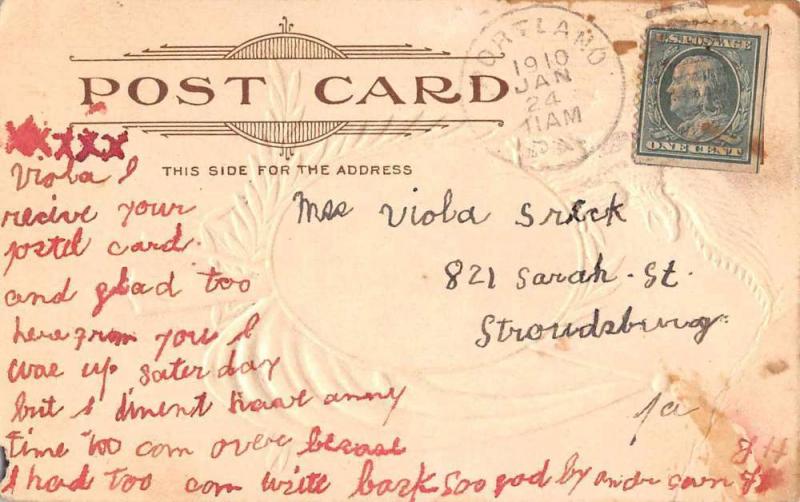 POST CARD
THIS SIDE FOR THE ADDRESS
PORTLAND
1910
JAN
24
11AM
PA
U.S. POSTAGE
ONE CENT
xxxxx
Viola I
recive your
postel card
and glad too
here from you I
wae up saterday
but I dinent haave anny
time too com overe becase
I had too com write back Soo god by
Mss Viola Srick
821 Sarah. St.
Stroudsburg
Pa